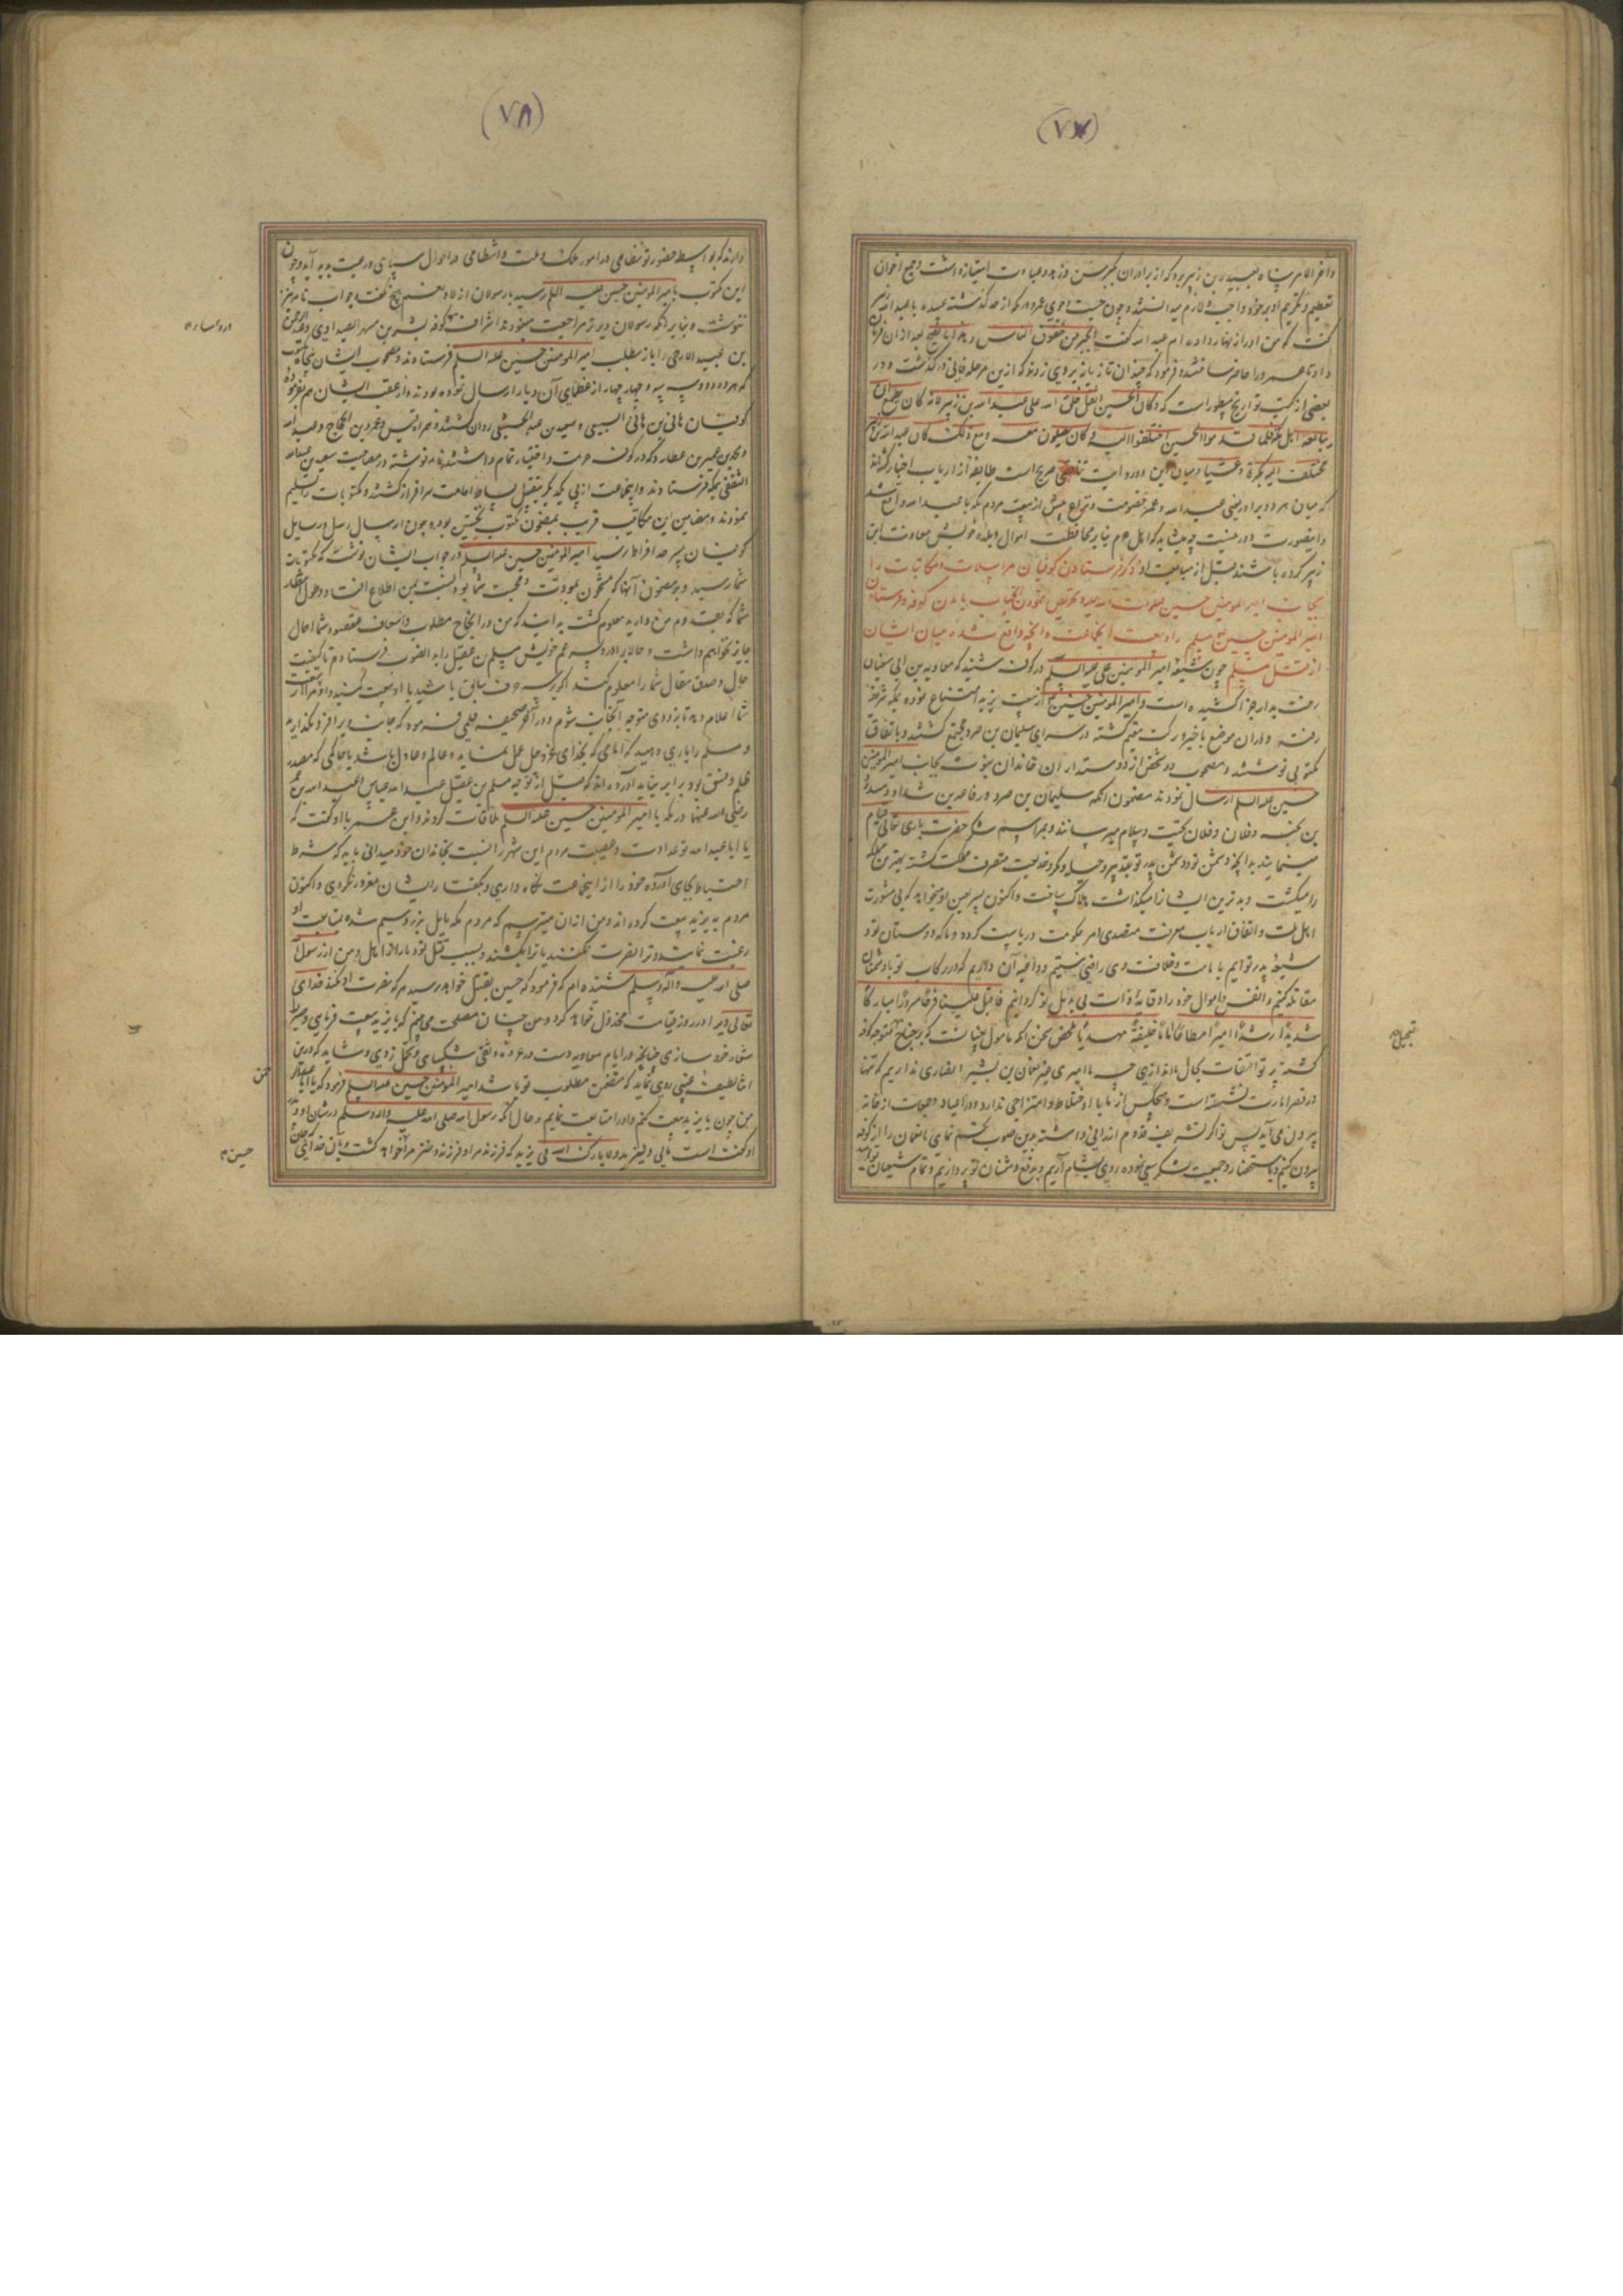 (٧٧)
و آخر الامر پناه بعبیده بن زبیر برد که از برادران بکبر سن و زهد و عبادت امتیاز داشت و جمیع اخوان
تعظیم و تکریم او بر خود واجب و لازم میدانستند و چون جست و جوی عمرو از حد گذشت عبیده با عبدالله زبیر
گفت که من او را زنهار داده‌ام عبدالله گفت
داد تا عمرو را حاضر ساختند و فرمود که چندان تازیانه بر وی زدند که ازین مرحله فانی درگذشت و در
بعضی از کتب تواریخ مسطور است که و کان الحسین اثقل خلق الله علی عبدالله بن زبیر لانه کان یطمع ان
یبایعه اهل مکه فلما قدموا الحسین اختلفوا الیه و کان یصلون معه و مع ذلک کان عبدالله بن زبیر
یختلف الیه بکرة و عشیا و میان این دو روایت تناقض صریح است طایفه از ارباب اخبار گفته‌اند
که میان هر دو برادر یعنی عبدالله و عمرو خصومت و نزاع پیش از بیعت مردم مکه با عبدالله واقع شد
و اینصورت دور نیست چه میشاید که اهل حرم بنابر محافظت اموال و بلده خویش معاونت ابن
زبیر کرده باشند قبل از مبایعت او ذکر فرستادن کوفیان مراسلات و مکاتبات را
بجانب امیر المومنین حسین صلوات الله علیه و تحریص نمودن آنجناب بآمدن کوفه و فرستادن
امیر المومنین حسین مسلم را و بیعت آنجماعت و آنچه واقع شده میان ایشان
از قتل مسلم چون شیعه امیر المومنین علی علیه السلام در کوفه شنیدند که معاویة بن ابی سفیان
رخت بدار جزا کشیده است و امیر المومنین حسین از بیعت یزید امتناع نموده بمکه شریفه
رفته و در آن موضع با خیر و برکت مقیم گشته در سرای سلیمان بن صرد مجتمع گشتند و باتفاق
مکتوبی نوشتند و مصحوب دو شخص از دوستداران خاندان نبوت بجانب امیر المومنین
حسین علیه السلام ارسال نمودند مضمون آنکه سلیمان بن صرد و رفاعه بن شداد و مسیب
بن نجبه و فلان و فلان تحیت و سلام میرسانند و بمراسم شکر حضرت باری تعالی قیام
مینمایند بدانچه دشمن تو و دشمن پدر تو
را میکشت و بدترین ایشان را میگذاشت هلاک ساخت و اکنون پسر لعین او میخواهد که بی مشورت
اهل ملت و اتفاق ارباب معرفت متصدی امر حکومت و ریاست گردد و ما که دوستان تو و
شیعه پدر توایم بامامت و خلافت وی راضی نیستیم و داعیه آن داریم که در رکاب تو با دشمنان
مقاتله کنیم و انفس و اموال خود را وقایه ذات بی بدیل تو گردانیم فاقبل علینا فرحا مسرورا مبارکا
سدیدا رشیدا امیرا مطاعا اماما خلیفة مهدیا ملخص سخن آنکه مامول چنانست که بر جناح تعجیل متوجه کوفه
در قصر امارت نشسته است و هیچکس از ما با او اختلاط و امتزاجی ندارد و در اعیاد و جمعات از خانه
بیرون می‌آید پس تو اگر تشریف قدوم ارزانی داشته بدین صوب تجشم نمایی ما نعمان را از کوفه
بیرون کنیم و باستحضار و جمعیت لشکر سعی نموده روی بشام آریم و بدفع دشمنان تو پردازیم و تمام شیعیان تو امید
تعجیل
(٧٨)
دارند که بواسطه حضور تو نظامی در امور ملک و ملت و انتظامی در احوال سپاهی و رعیت پدید آید و چون
این مکتوب بامیر المومنین حسین علیه السلام رسید با رسولان از لا و نعم هیچ نگفت و جواب نامه نیز
ننوشت و بنابر آنکه رسولان دیرتر مراجعت مینمودند اشراف کوفه بشر بن مسهر الصیداوی و عبدالرحمن
بن عبید الارحبی را باز بطلب امیر المومنین حسین علیه السلام فرستادند و مصحوب ایشان پنجاه مکتوب
که هر دو دو و سه سه و چهار چهار از عظمای آن دیار ارسال نموده بودند و از عقب ایشان هم بفرموده
کوفیان هانی بن هانی السبیعی و سعید بن عبدالله الحنفی روان گشتند
و محمد بن عمیر بن عطارد که در کوفه حرمت و اختیار تمام داشتند نامه نوشته در مصاحبت سعید بن عبدالله
الثقفی بمکه فرستادند و اینجماعت از پی یکدیگر بتقبیل بساط امامت سرافراز گشتند و مکتوبات را تسلیم
نمودند و مضامین این مکاتیب قریب بمضمون مکتوب نخستین بود و چون ارسال رسل و رسایل
کوفیان بسرحد افراط رسید امیر المومنین حسین علیه السلام در جواب ایشان نوشت که مکتوبات
شما رسید و بر مضمون آنها که مشحون بمودت و محبت شما بود نسبت بمن اطلاع افتاد و طول انتظار
شما که بقدوم من دارید معلوم گشت بدانید که من در انجاح مطلوب و اسعاف مقصود شما اهمال
جایز نخواهم داشت و حالا برادر و پسر عم خویش مسلم بن عقیل را به آنصوب فرستادم تا کیفیت
حال و صدق مقال شما را معلوم کند اگر بر سر حرف سابق باشید با او بیعت کنید و او مرا از بیعت
شما اعلام دهد تا بزودی متوجه آنجانب شوم و در آخر صحیفه قلمی فرموده که جانب ویرا فرو مگذارید
و مسلم را یاری دهید که امامی که بخدای عز و جل عمل نماید و عالم و عادل باشد با حاکمی که مصدر
ظلم و فسق بود برابر نیاید آورده‌اند که قبل از توجه مسلم بن عقیل عبدالله عباس و عبدالله بن عمر
رضی الله عنهما در مکه با امیر المومنین حسین علیه السلام ملاقات کردند و ابن عمر با او گفت که
یا ابا عبدالله تو عداوت و عصبیت مردم این شهر را نسبت بخاندان خود میدانی باید که شرط
احتیاط بجای آورده خود را از اینجماعت نگاه داری و بگفت ایشان مغرور نگردی و اکنون
مردم به یزید بیعت کرده‌اند و من از آن میترسم که مردم مکه مایل بزر و سیم شده بمتابعت او
رغبت نمایند و ترا نصرت نکنند یا ترا بکشند و بسبب قتل تو و من از رسول
صلی الله علیه و آله و سلم شنیده‌ام که فرمود که حسین بقتل خواهد رسید هر که نصرت او نکند خدای
تعالی ویرا در روز قیامت مخذول خواهد کرد و من چنان مصلحت می‌بینم که با یزید بیعت فرمایی و صبر
شعار خود سازی چنانچه در ایام معاویه دست در عروه وثقی شکیبایی و تحمل زدی و شاید که درین
اثنا لطیفه غیبی روی نماید که متضمن مطلوب تو باشد امیر المومنین حسین علیه السلام فرمود که یا ابا عبدالرحمن
من چون با یزید بیعت کنم و او را متابعت نمایم و حال آنکه رسول الله صلی الله علیه و آله و سلم در شان او و پدر
او گفت است مالی و لیزید لا بارک الله فی یزید که فرزند مرا و فرزند دختر مرا خواهد کشت و بآن خدایی که جان
حسین